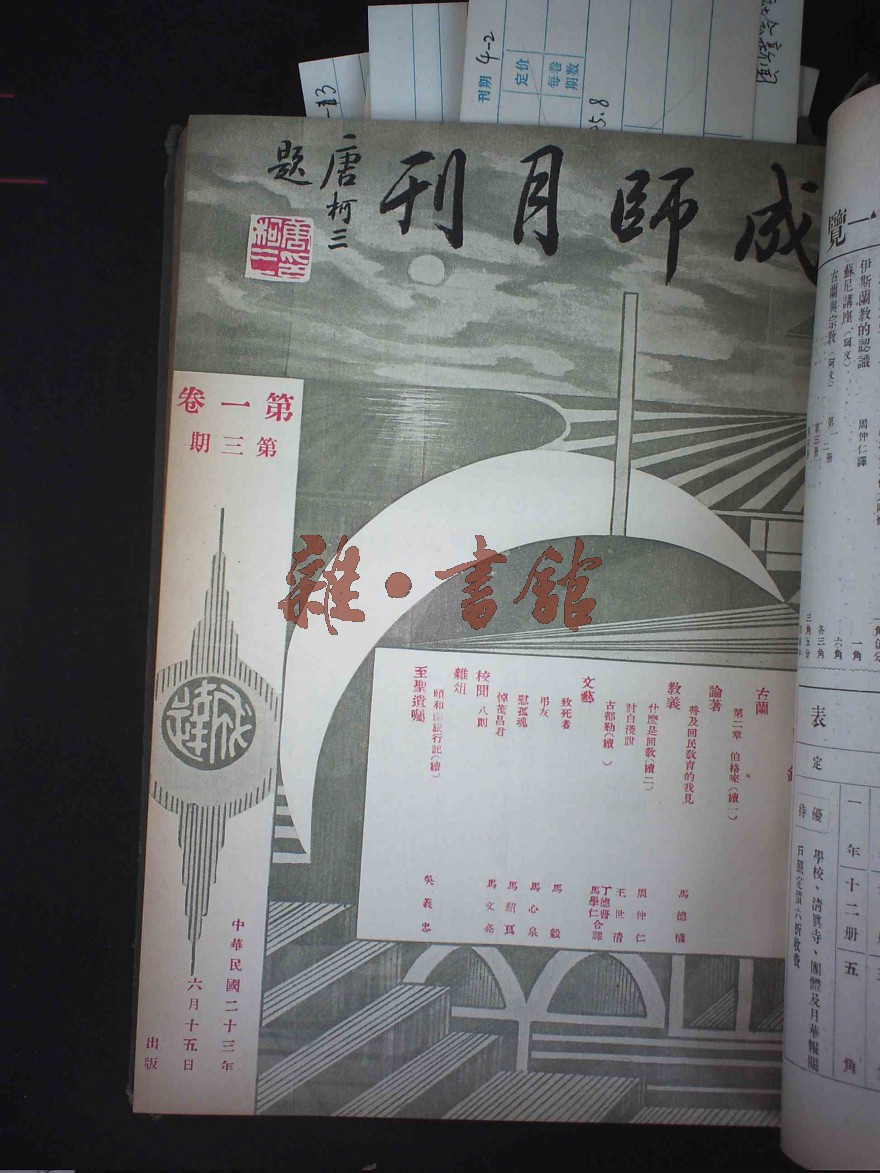 成師月刊
唐柯三
題
唐柯三
第一卷
第三期
成達
中華民國二十三年
六月十五日
出版
雜·書館
古蘭
第二章 伯格喇(續一)
論著
普及回民教育的我見
馬德
教義
什麼是回教(續二)
周仲仁
討白淺說
王世清
古都勒(續)
丁德普
馬學仁合譯
文藝
致死者
馬毅
弔友
馬心泉
慰孤魂
馬紹孤
悼茂昌君
馬文亮
校聞 八則
雜俎
頤和園旅行記(續)
吳義忠
至聖遺囑
一覽
伊斯蘭教的認識
周仲仁譯
一角
蘇尼講座(阿文)
第一二冊
六角
古蘭與宗教(阿文)
各三角
表
定
優待
一年十二冊五角
學校、清真寺、團體及月華報閱
戶照定價六折收費
刊期 4-2
定价
每卷期数